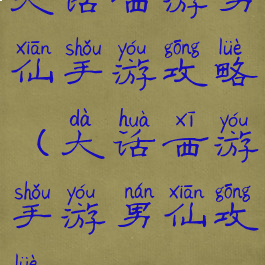 大话西游男
xiān shǒu yóu gōng lüè
仙手游攻略
dà huà xī yóu
（大话西游
shǒu yóu nán xiān gōng
手游男仙攻
lüè